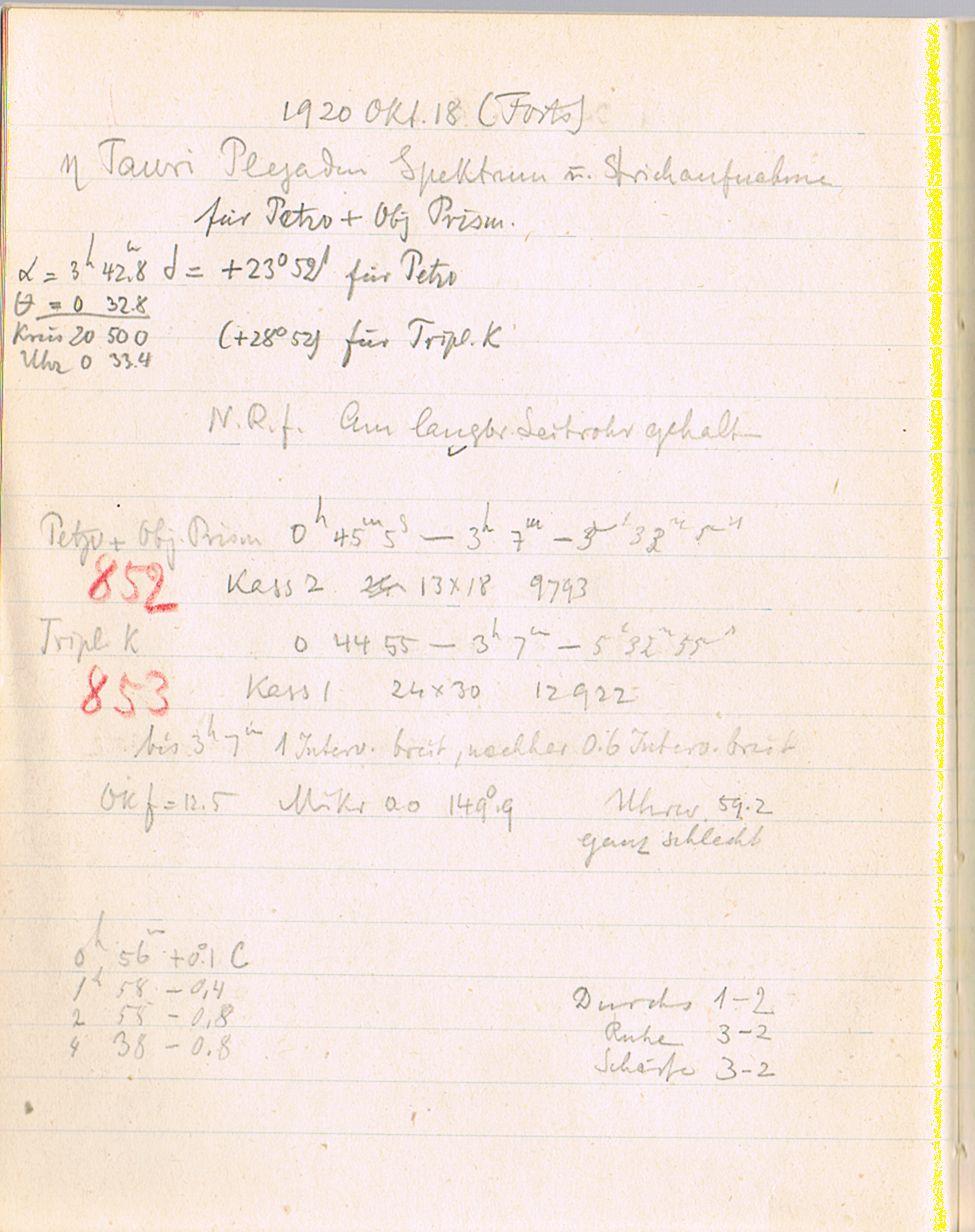 1920 Okt. 18 (Forts)
η Tauri Plejaden Spektrum u. Strichaufnahme
für Petzv + Obj Prism.
α = 3h 42m.8 δ = +23°52' für Petzv
θ = 0 32.8
Kreis 20 50 0 (+28°52') für Tripl. K
Uhr 0 33.4
N.R.f. Am langbr. Leitrohr gehalt
Petzv + Obj. Prism 0h 45m 5s — 3h 7m —
852 Kass 2 13×18 9793
Tripl. K 0 44 55 — 3h 7m — 5h 32m 55s
853 Kass 1 24×30 12922
bis 3h 7m 1 Interv. breit, nachher 0.6 Interv. breit
Ok f = 12.5 Mikr 0.0 149°.9 Uhrw. 59.2
ganz schlecht
0h 56m +0°.1 C
1h 58 – 0,4
2 58 – 0,8 Durchs 1–2
4 38 – 0.8 Ruhe 3–2
Schärfe 3–2